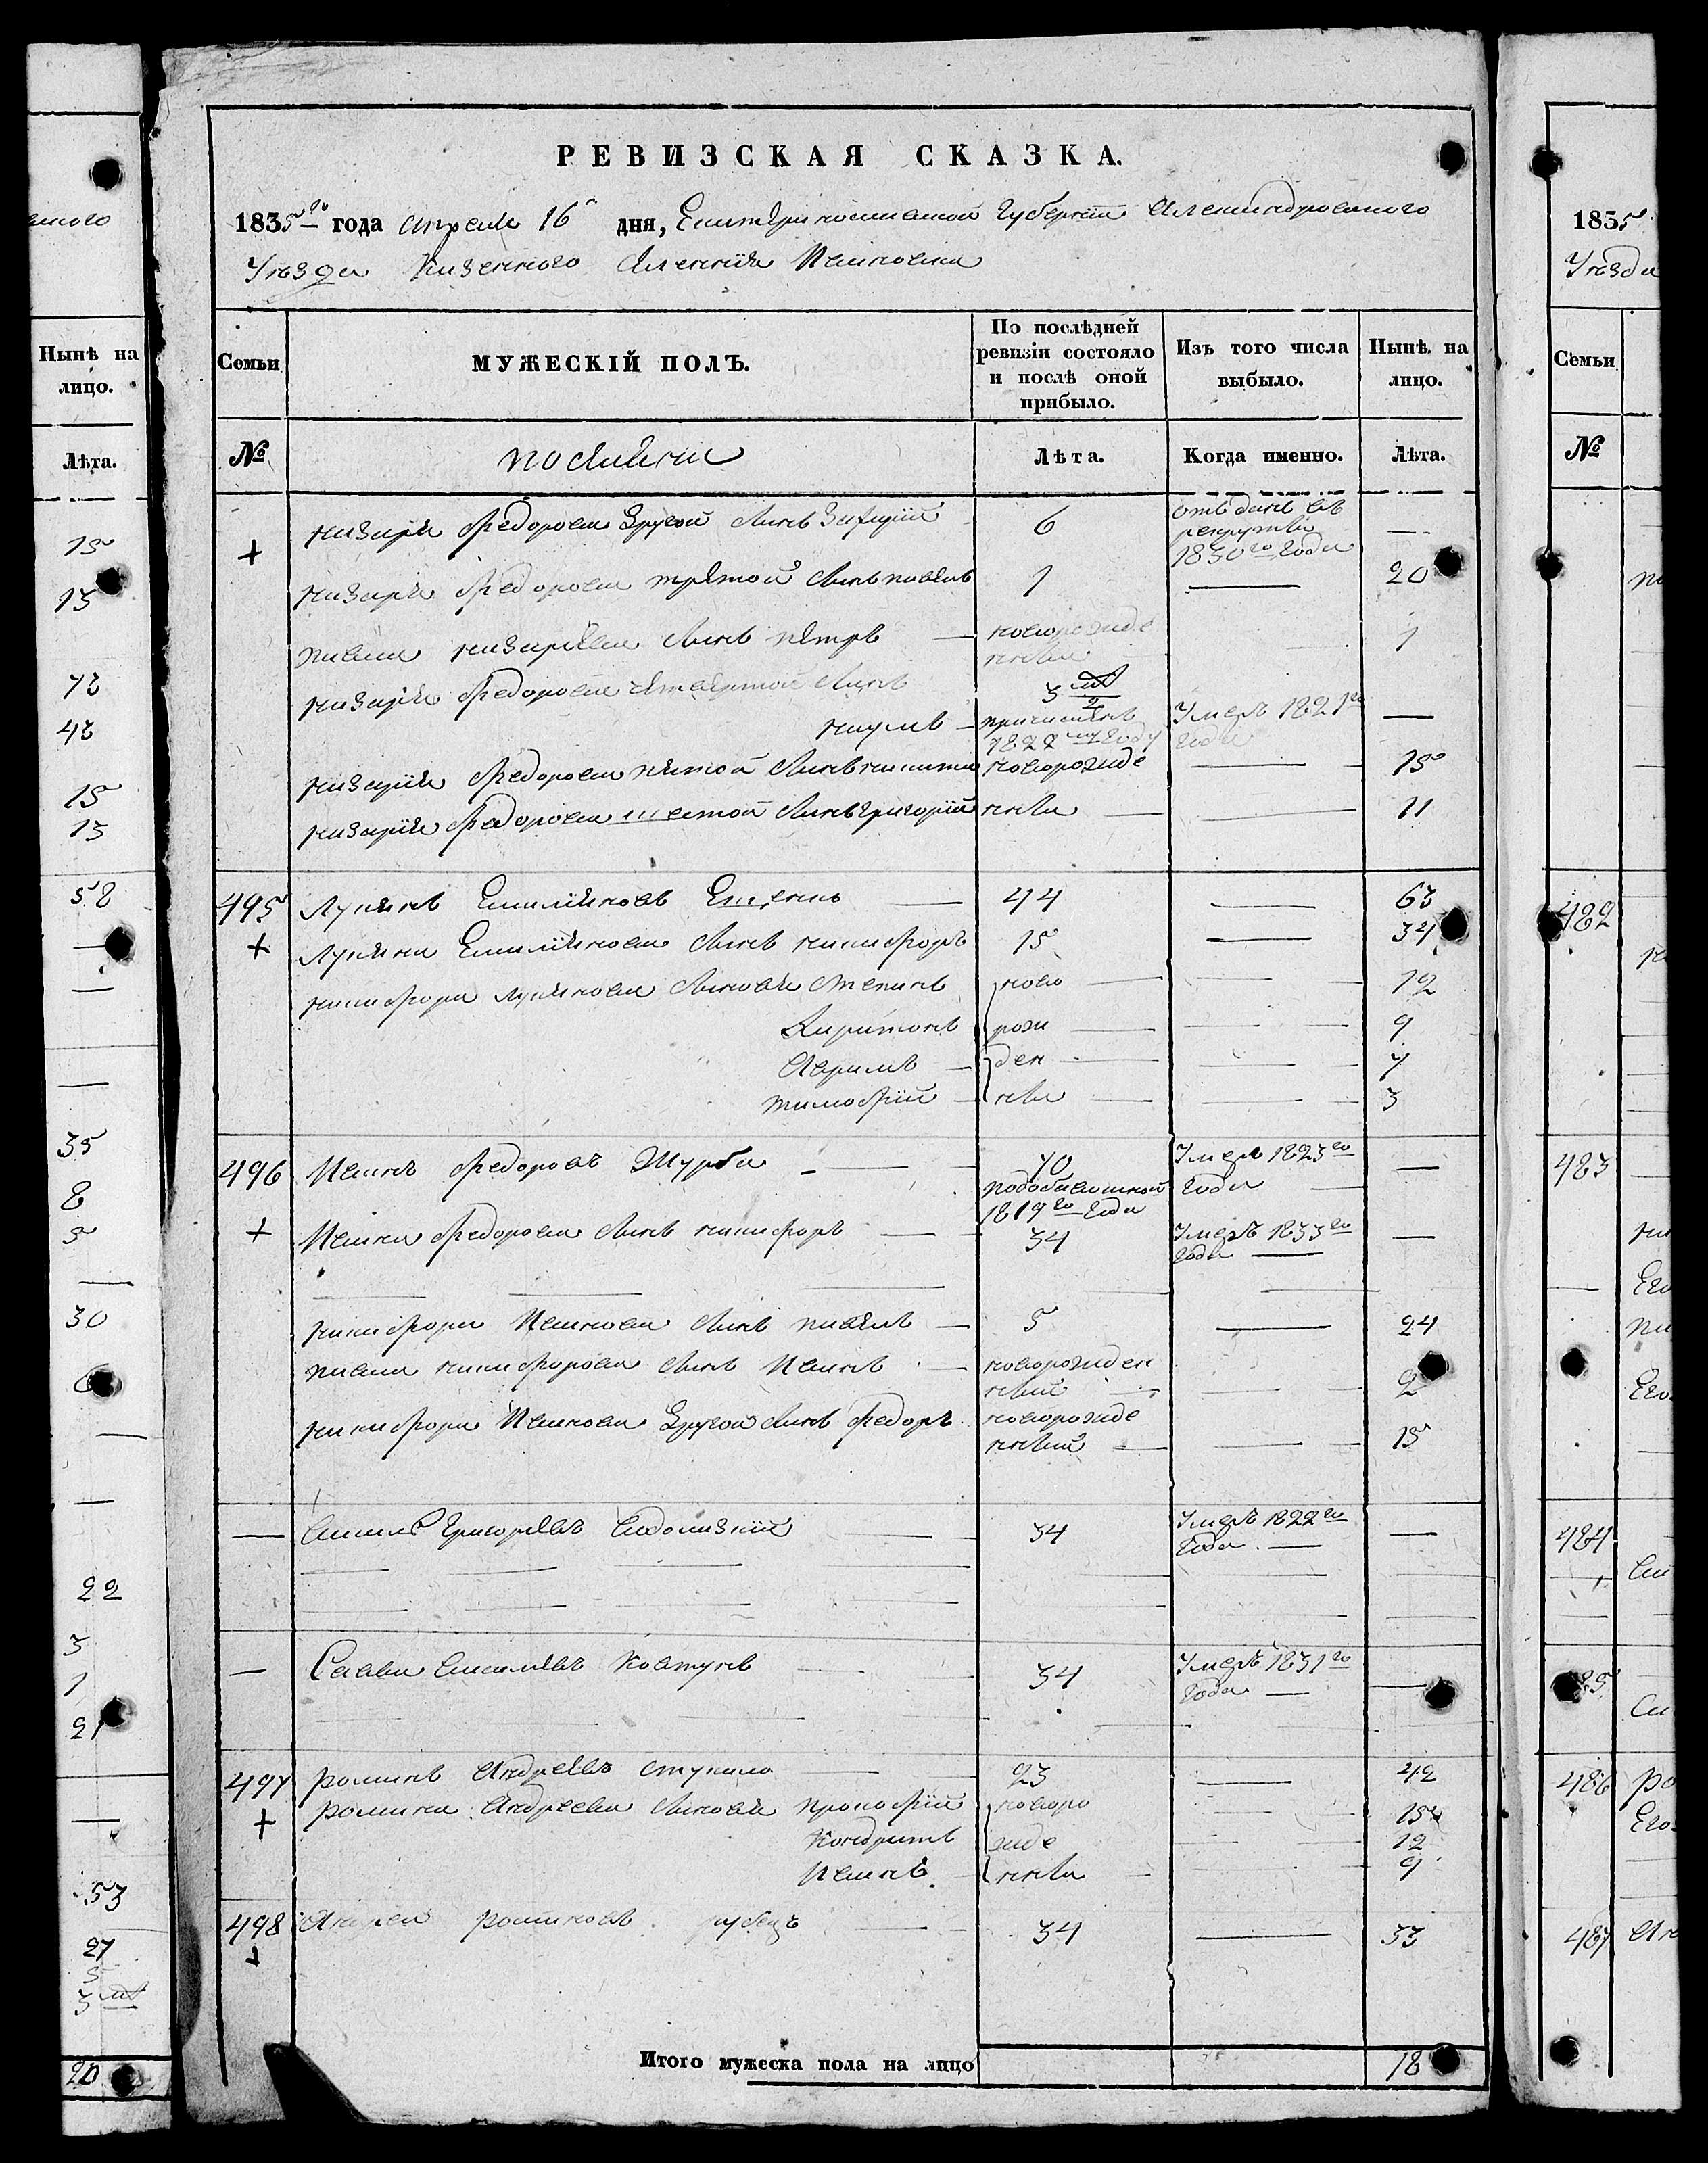 РЕВИЗСКАЯ СКАЗКА.
1835го года апреля 16 дня, Екатеринославской Губернїи Александровского
Уезда Казенного Селенїя Ивановка
Семьи
МУЖЕСКІЙ ПОЛЪ.
По послѣдней ревизіи состояло и послѣ оной прибыло.
Изъ того числа выбыло.
Нынѣ на лицо.
№
поселяни
Лѣта.
Когда именно.
Лѣта.
+ назаря Федорова другой Сынъ 6 отъданъ въ рекруты 1830го Года —
назаря Федорова третой Сынъ павелъ 1 — 20
павла назарьева Сынъ петръ — новорожденны 1
назарія Федорова четвертой Сынъ
наумъ — 3 причисленъ 1822му Году Умеръ 1821го Года —
назарія Федорова пятой Сынъ никита новорожде — 15
назарія Федорова шестой Сынъ григорій нны — — 11
495 Лукянъ Емельяновъ — 44 — 63
+ Лукяна Емельянова Сынъ никифоръ 15 — 34
никифора лукянова Сыновья Степанъ ново — — 12
Харитонъ рож — — 9
Аврамъ — ден — — 7
тимофій — ны — — 3
496 Иванъ Федоровъ Журба — 70 Умеръ 1823го Года —
+ Ивана Федорова Сынъ никифоръ — 34 Умеръ 1833го Года —
1819го Года
никифора Иванова Сынъ павелъ — 5 — 24
павла никифорова Сынъ Иванъ — новорожденный — 2
никифора Иванова Другой Сынъ Федоръ новорожденный — 15
— Григорьевъ — 34 Умеръ 1822го Года —
— Савва Васильевъ Ковтунъ — 34 Умеръ 1831го Года —
497 романъ Андреевъ Ступало — 23 — 42
+ романа Андреева Сыновья прокофій новоро — 15
Кондратъ жде — 12
Иванъ — нны — 9
498 Андрей романовъ рубецъ — 34 — 33
+
Итого мужеска пола на лицо 18
Нынѣ на лицо.
Лѣта.
15
13
72
42
15
13
58
—
—
—
35
8
5
—
30
—
—
22
3
1
21
—
53
27
5
3
20
1835
Уезда
Семьи
№
482
483
Его
Его
484
486 ро
Его
487